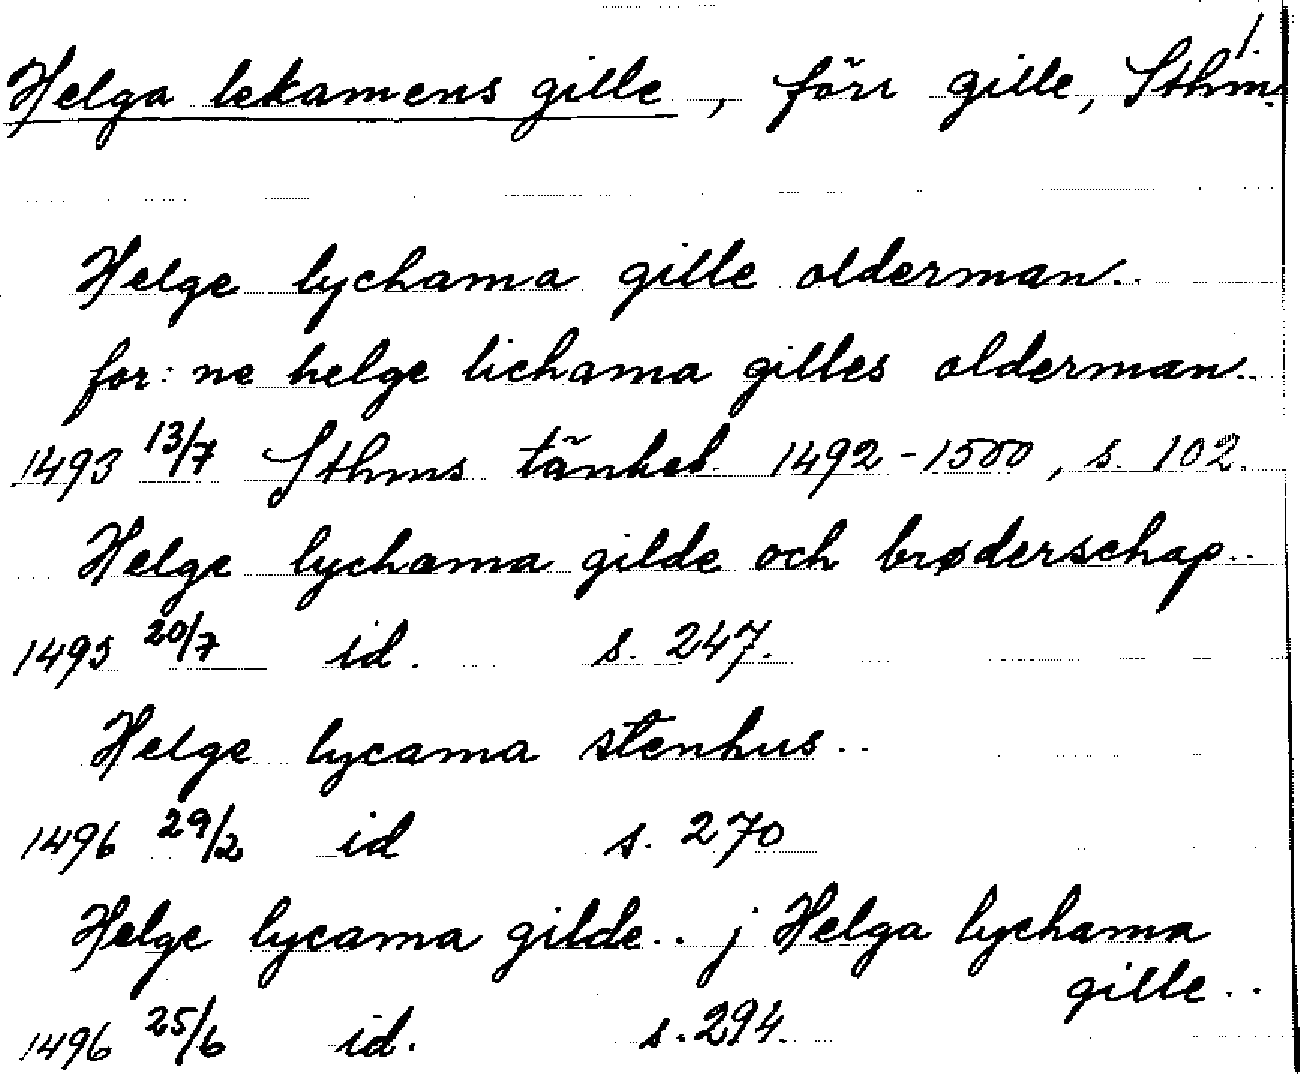 1.
Helga lekamens gille, förr gille, Sthm.
Helge lychama gille olderman..
for:ne helge lichama gilles olderman..
1493 13/7 Sthms tänkeb. 1492-1500, s. 102.
Helge lychama gilde och brøderschap..
1495 20/7 id. s. 247.
Helge lycama stenhus..
1496 29/2 id s. 270
Helge lycama gilde.. j Helga lychama
gille..
1496 25/6 id. s. 294.